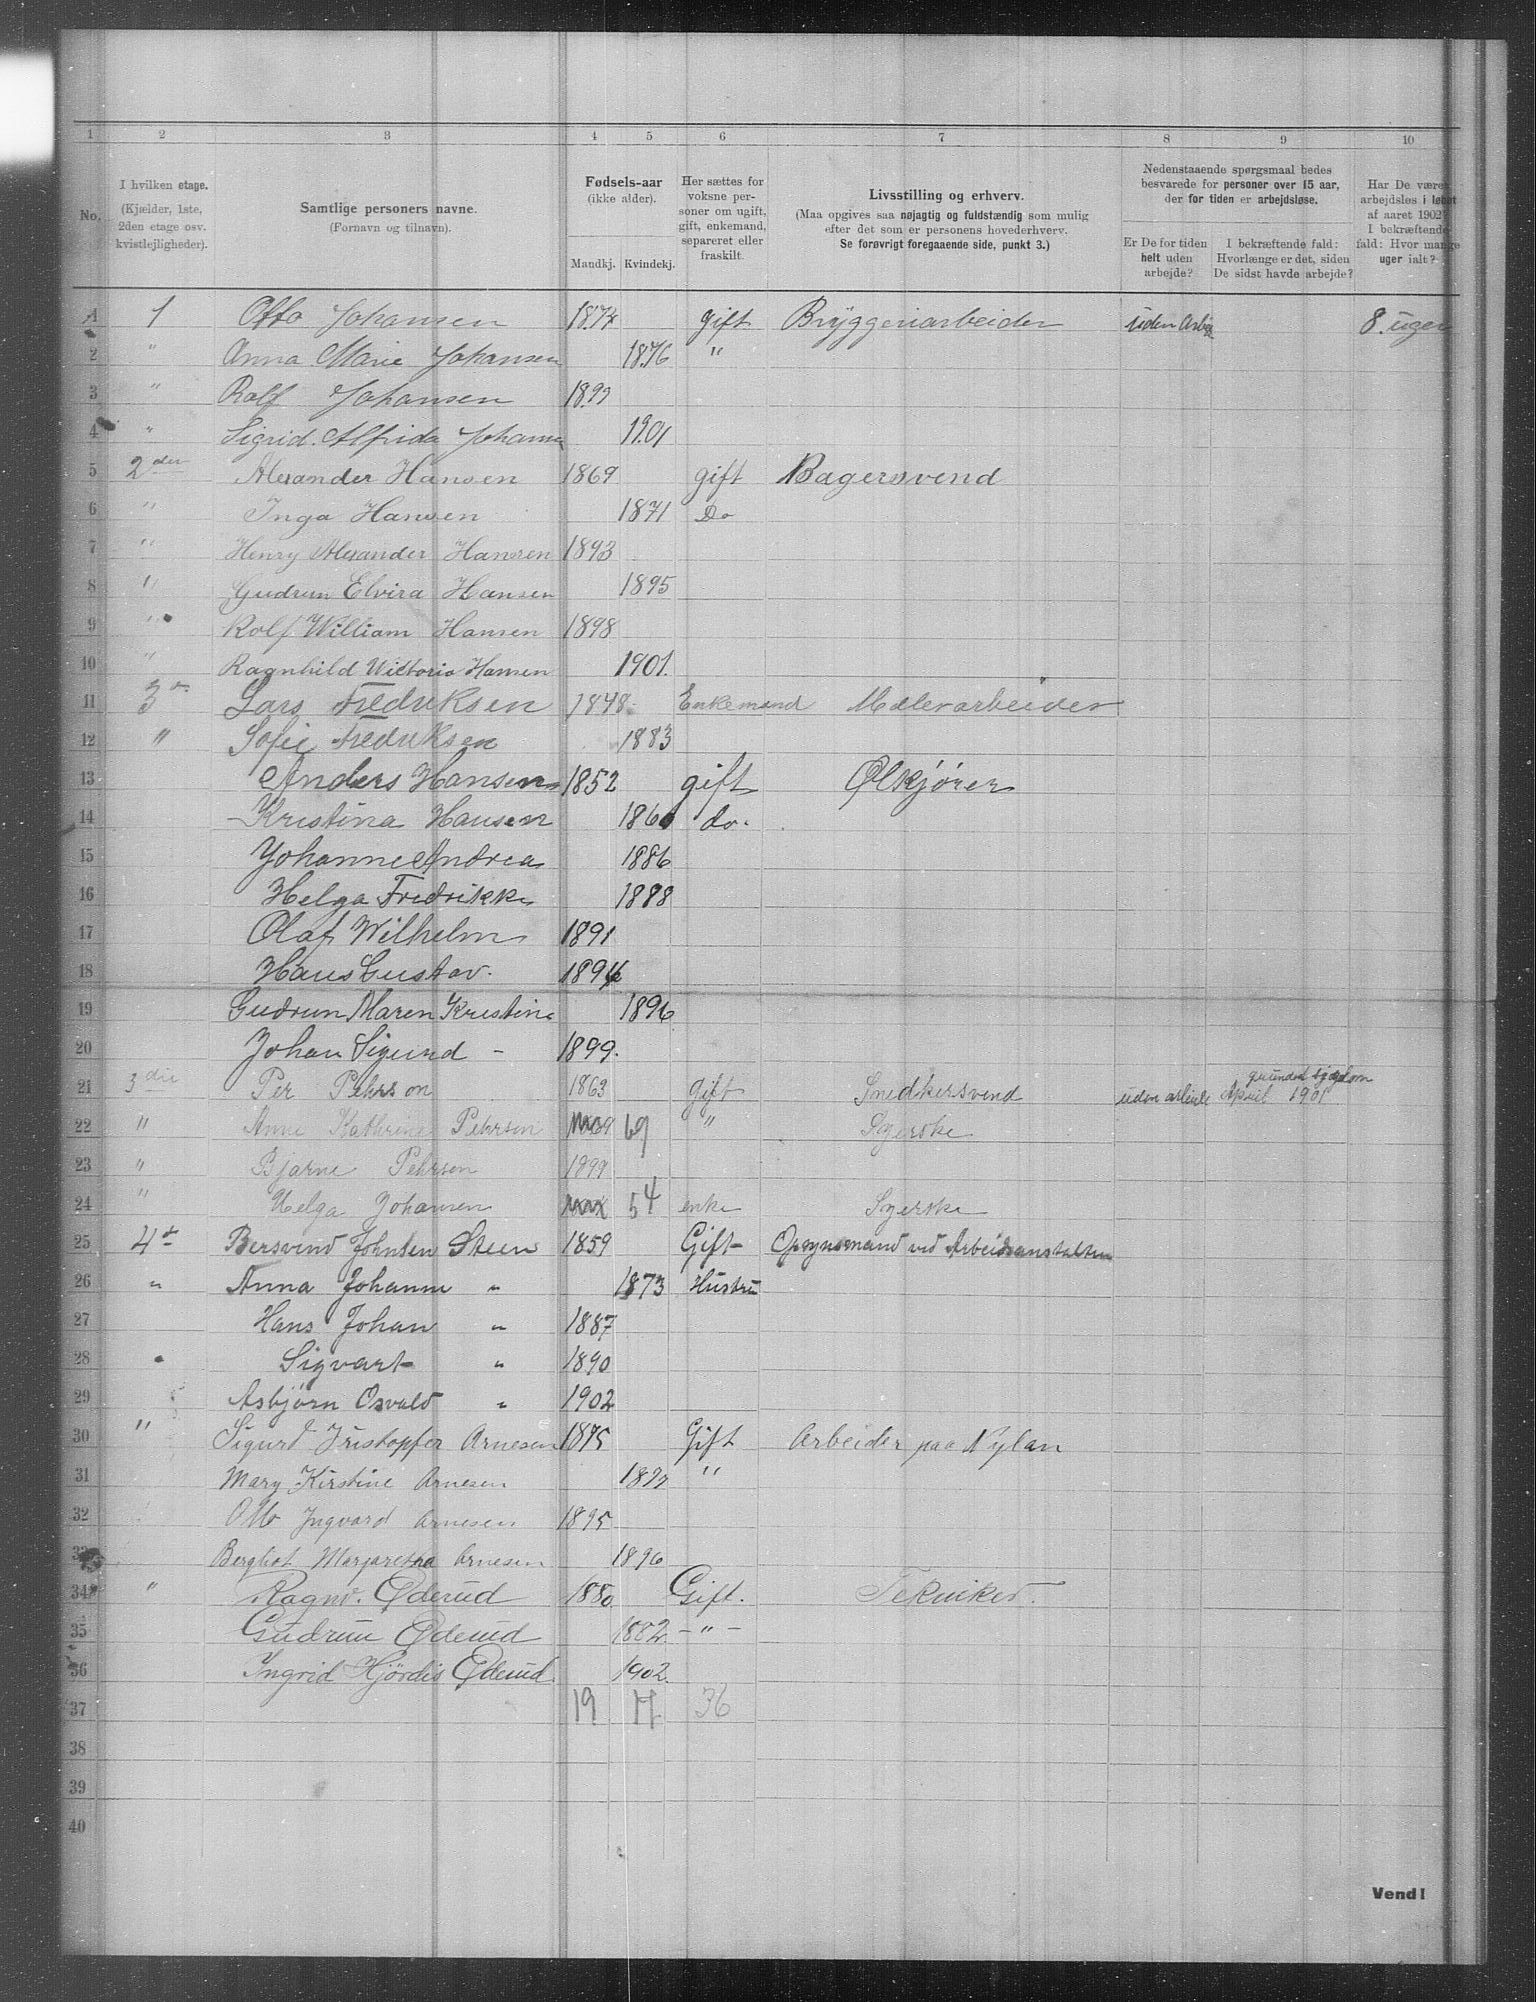 1 2 3 4 5 6 7 8 9 10
No.
I hvilken etage.
(Kjælder, 1ste,
2den etage osv.
kvistlejligheder).
Samtlige personers navne.
(Fornavn og tilnavn).
Fødsels-aar
(ikke alder).
Mandkj. Kvindekj.
Her sættes for
voksne per-
soner om ugift,
gift, enkemand,
separeret eller
fraskilt.
Livsstilling og erhverv.
(Maa opgives saa nøjagtig og fuldstændig som mulig
efter det som er personens hovederhverv.
Se forøvrigt foregaaende side, punkt 3.)
Nedenstaaende spørgsmaal bedes
besvarede for personer over 15 aar,
der for tiden er arbejdsløse.
Er De for tiden
helt uden
arbejde?
I bekræftende fald:
Hvorlænge er det, siden
De sidst havde arbejde?
Har De været
arbejdsløs i løbet
af aaret 1902?
I bekræftende
fald: Hvor mange
uger ialt?
1 1 Otto Johansen 1874 gift Bryggeriarbeider uden Arbei 8. uger
2 " Anna Marie Johansen 1876 "
3 " Rolf Johansen 1899
4 " Sigrid. Alfrida Johansen 1901
5 2den Alexander Hansen 1869 gift Bagersvend
6 " Inga Hansen 1871 Do
7 " Henry Alexander Hansen 1893
8 " Gudrun Elvira Hansen 1895
9 " Rolf William Hansen 1898
10 " Ragnhild Wictoria Hansen 1901.
11 3 Lars Fredriksen 1848. Enkemand Malerarbeider
12 " Sofie Fredriksen 1883
13 Anders Hansen 1852 gift Ølkjører
14 Kristina Hansen 1860 do.
15 Johanne Andrea 1886
16 Helga Fredrikke 1888
17 Olaf Wilhelm 1891
18 Hans Gustav. 1894
19 Gudrun Maren Kristine 1896
20 Johan Sigurd - 1899.
grundet sygdom
21 3die Per Pehrson 1863 gift Snedkersvend uden arbeide April 1901
22 " Anne Kathrine Pehrson 69 " Syerske
23 " Bjarne Pehrson 1899
24 " Helga Johansen 54 enke Syerske
25 4de Bersvend Johnsen Steen 1859 Gift Opsynsmand ved Arbeidsanstalten
26 " Anna Johanne " 1873 Hustru
27 Hans Johan " 1887
28 Sigvart " 1890
29 Asbjørn Osvald " 1902
30 " Sigurd Kristopfer Arnesen 1875 Gift Arbeider paa Nylan
31 Mary Kirstine Arnesen "
32 Otto Ingvard Arnesen 1895
33 Bergliot Margaretha Arnesen 1896
34 " Ragnv. Øderud 1880 Gift. Tekniker.
35 Gudrun Øderud 1882 - " -
36 Ingrid Hjördis Øderud 1902.
37 19 17 36
38
39
40
Vend!